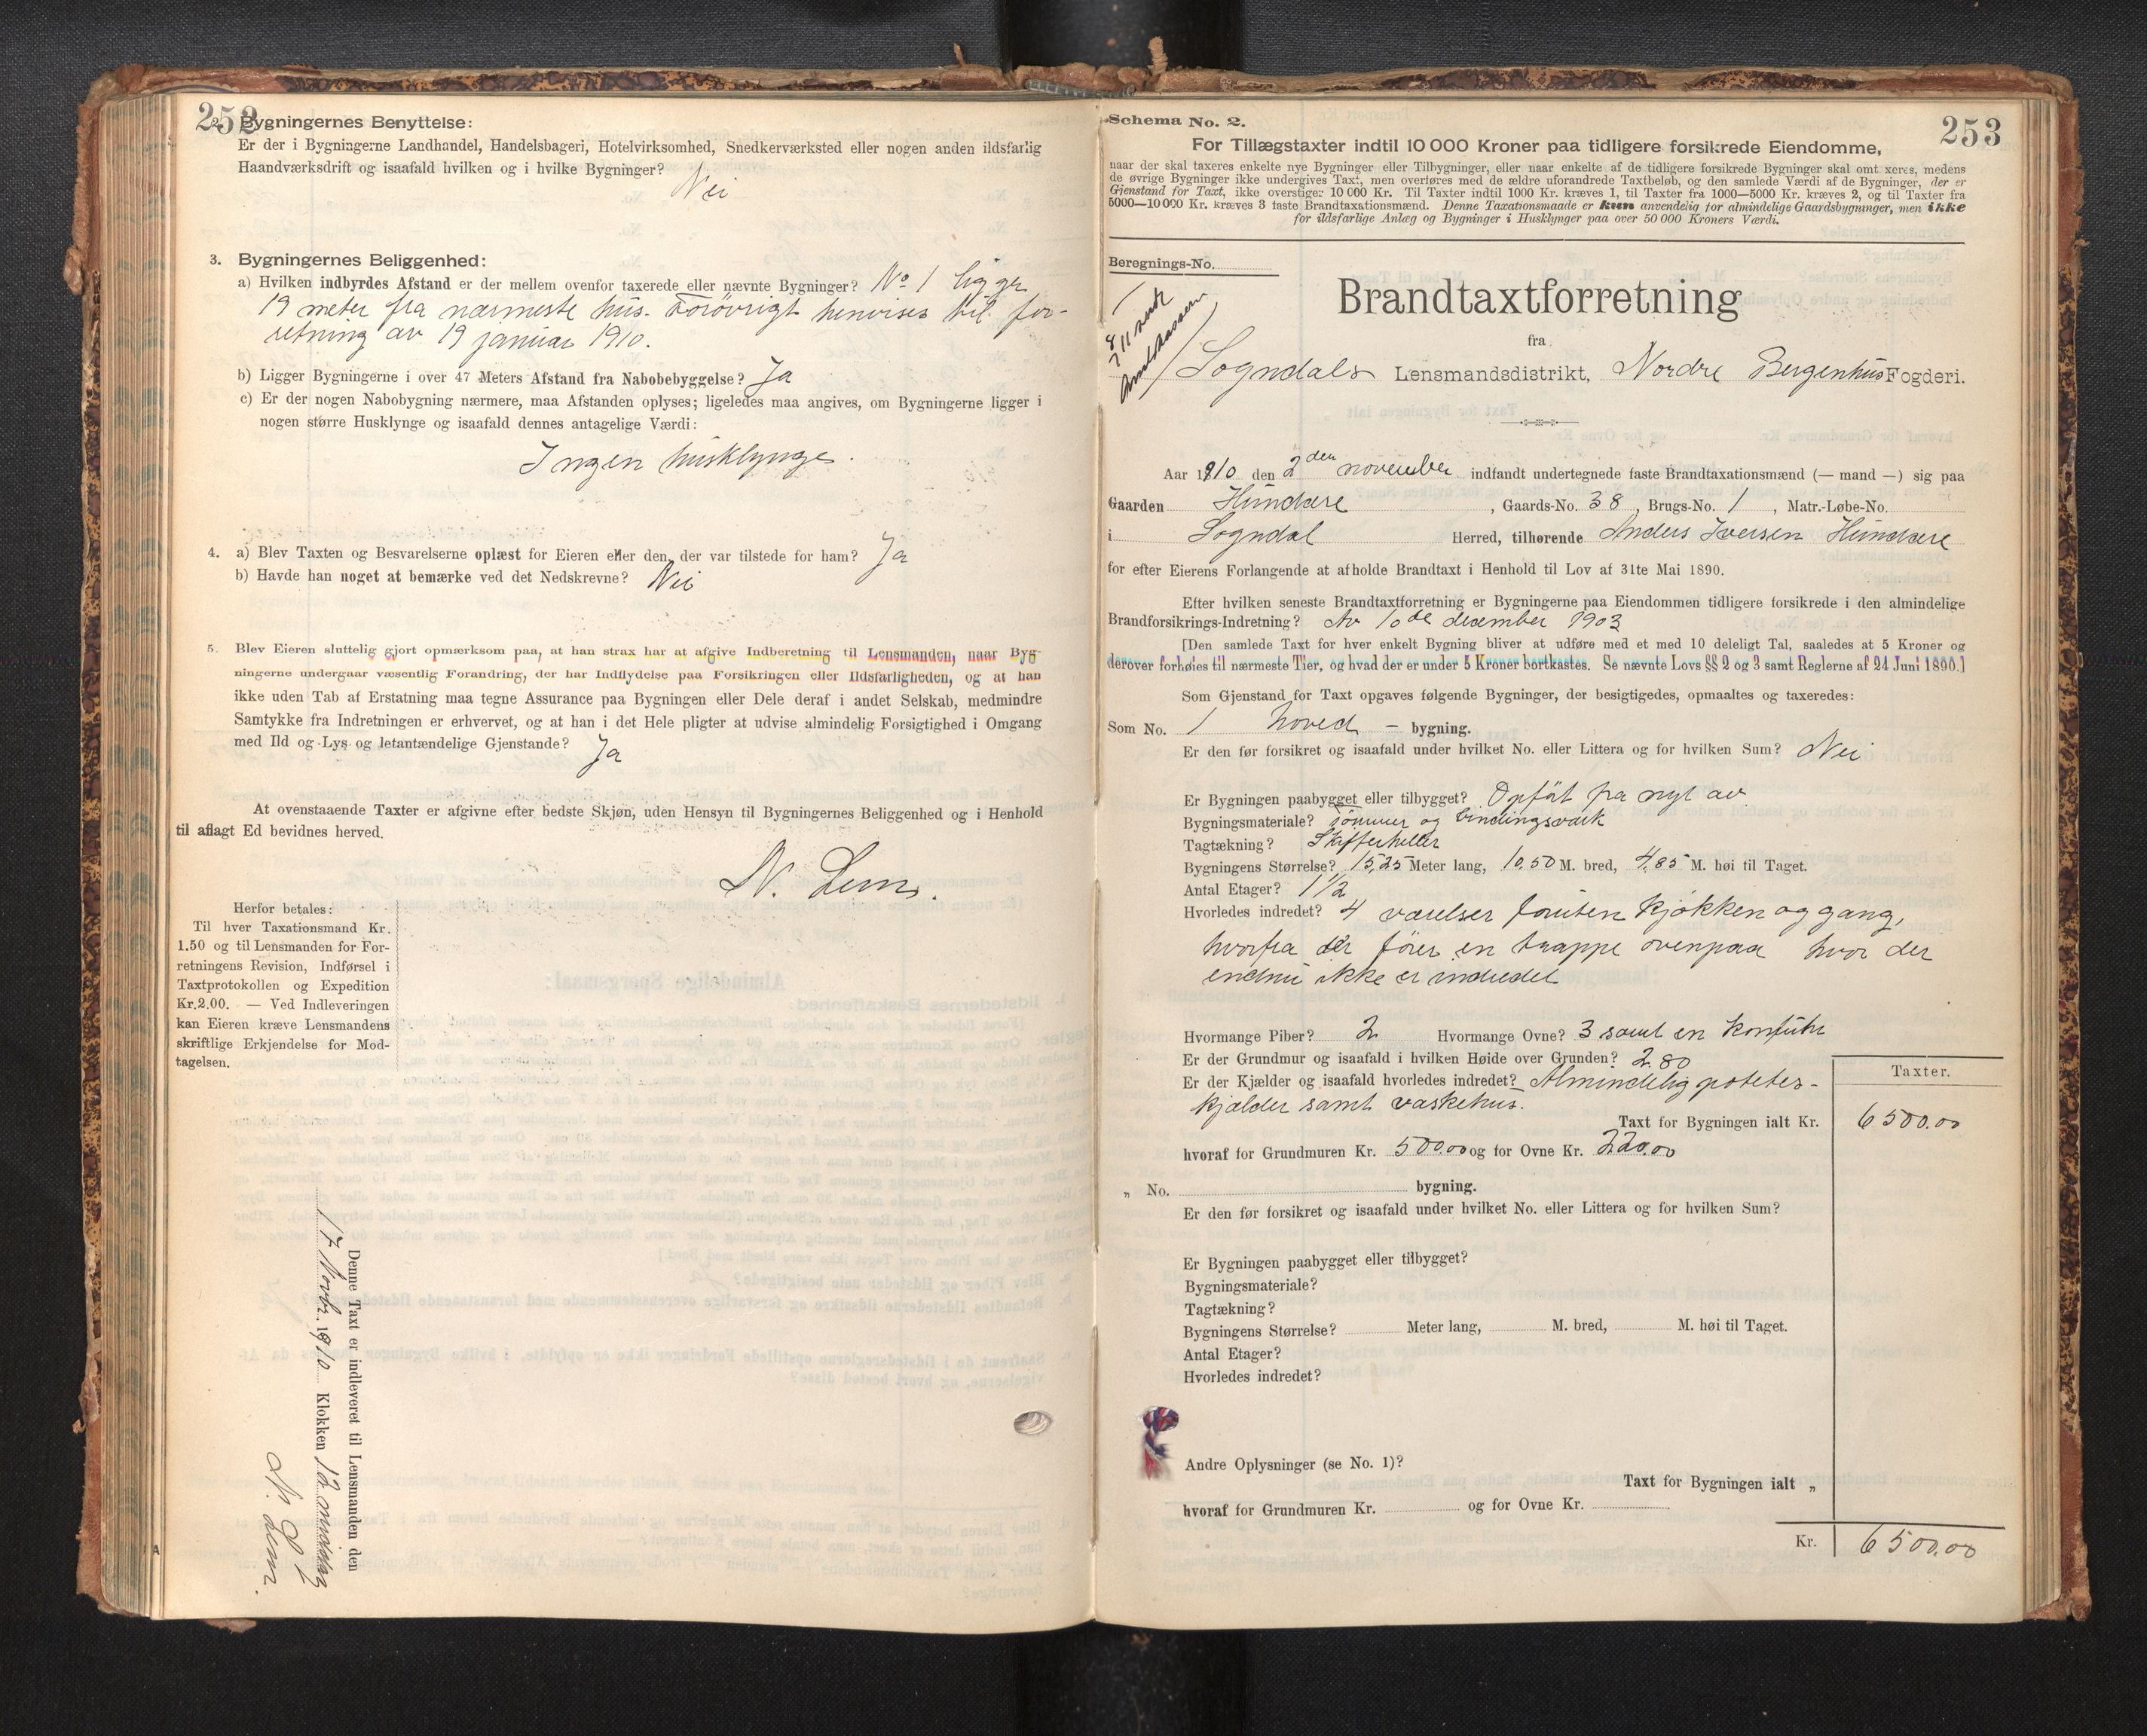 252
2. Bygningernes Benyttelse:
Er der i Bygningerne Landhandel, Handelsbageri, Hotelvirksomhed, Snedkerværksted eller nogen anden ildsfarlig
Haandværksdrift og isaafald hvilken og i hvilke Bygninger?
Nei
3. Bygningernes Beliggenhed:
a) Hvilken indbyrdes Afstand er der mellem ovenfor taxerede eller nævnte Bygninger? No 1 ligger
19 meter fra nærmeste hus. Forøvrigt henvises til for-
retning av 19 januar 1910.
b) Ligger Bygningerne i over 47 Meters Afstand fra Nabobebyggelse? Ja
c) Er der nogen Nabobygning nærmere, maa Afstanden oplyses; ligeledes maa angives, om Bygningerne ligger i
nogen større Husklynge og isaafald dennes antagelige Værdi:
Ingen husklynge.
4. a) Blev Taxten og Besvarelserne oplæst for Eieren eller den, der var tilstede for ham? Ja
b) Havde han noget at bemærke ved det Nedskrevne? Nei
5. Blev Eieren sluttelig gjort opmærksom paa, at han strax har at afgive Indberetning til Lensmanden, naar Byg-
ningerne undergaar væsentlig Forandring, der har Indflydelse paa Forsikringen eller Ildsfarligheden, og at han
ikke uden Tab af Erstatning maa tegne Assurance paa Bygningen eller Dele deraf i andet Selskab, medmindre
Samtykke fra Indretningen er erhvervet, og at han i det Hele pligter at udvise almindelig Forsigtighed i Omgang
med Ild og Lys og letantændelige Gjenstande? Ja
At ovenstaaende Taxter er afgivne efter bedste Skjøn, uden Hensyn til Bygningernes Beliggenhed og i Henhold
til aflagt Ed bevidnes herved.
N. Lem.
Herfor betales:
Til hver Taxationsmand Kr.
1.50 og til Lensmanden for For-
retningens Revision, Indførsel i
Taxtprotokollen og Expedition
Kr.2.00. — Ved Indleveringen
kan Eieren kræve Lensmandens
skriftlige Erkjendelse for Mod-
tagelsen.
Denne Taxt er indleveret til Lensmanden den
17 Novbr. 1910 Klokken 12 middag
N. Lem.
253
Schema No. 2.
For Tillægstaxter indtil 10 000 Kroner paa tidligere forsikrede Eiendomme,
naar der skal taxeres enkelte nye Bygninger eller Tilbygninger, eller naar enkelte af de tidligere forsikrede Bygninger skal omtaxeres, medens
de øvrige Bygninger ikke undergives Taxt, men overføres med de ældre uforandrede Taxtbeløb, og den samlede Værdi af de Bygninger, der er
Gjenstand for Taxt, ikke overstiger 10 000 Kr. Til Taxter indtil 1000 Kr. kræves 1, til Taxter fra 1000—5000 Kr. kræves 2, og til Taxter fra
5000—10 000 Kr. kræves 3 faste Brandtaxationsmænd. Denne Taxationsmaade er kun anvendelig for almindelige Gaardsbygninger, men ikke
for ildsfarlige Anlæg og Bygninger i Husklynger paa over 50 000 Kroners Værdi.
Beregnings-No.
Brandtaxtforretning
fra
Sogndals Lensmandsdistrikt, Nordre Bergenhus Fogderi.
Aar 1910 den 2den november indfandt undertegnede faste Brandtaxationsmænd (— mand —) sig paa
Gaarden Hundere, Gaards-No. 38, Brugs-No. 1, Matr.-Løbe-No.
i Sogndal Herred, tilhørende Anders Iversen Hundere
for efter Eierens Forlangende at afholde Brandtaxt i Henhold til Lov af 31te Mai 1890.
Efter hvilken seneste Brandtaxtforretning er Bygningerne paa Eiendommen tidligere forsikrede i den almindelige
Brandforsikrings-Indretning? Av 10de december 1903
[Den samlede Taxt for hver enkelt Bygning bliver at udføre med et med 10 deleligt Tal, saaledes at 5 Kroner og
derover forhøies til nærmeste Tier, og hvad der er under 5 Kroner bortkastes. Se nævnte Lovs §§ 2 og 3 samt Reglerne af 24 Juni 1890.]
Som Gjenstand for Taxt opgaves følgende Bygninger, der besigtigedes, opmaaltes og taxeredes:
Som No. 1 hoved — bygning.
Er den før forsikret og isaafald under hvilket No. eller Littera og for hvilken Sum? Nei
Er Bygningen paabygget eller tilbygget? Opført fra nyt av
Bygningsmateriale? tømmer og bindingsverk
Tagtækning? Skiferheller
Bygningens Størrelse? 15,25 Meter lang, 10.50 M. bred, 4,85 M. høi til Taget.
Antal Etager? 1 1/2
Hvorledes indredet? 4 værelser foruten kjøkken og gang,
hvorfra der fører en trappe ovenpaa hvor der
endnu ikke er indredet
Hvormange Piber? 2 Hvormange Ovne? 3 samt en komfur
Er der Grundmur og isaafald i hvilken Høide over Grunden? 2.80
Er der Kjælder og isaafald hvorledes indredet? Almindelig potetes-
kjælder samt vaskehus.
Taxter.
Taxt for Bygningen ialt Kr. 6500.00
hvoraf for Grundmuren Kr. 500.00 og for Ovne Kr. 220.00
„ No. bygning.
Er den før forsikret og isaafald under hvilket No. eller Littera og for hvilken Sum?
Er Bygningen paabygget eller tilbygget?
Bygningsmateriale?
Tagtækning?
Bygningens Størrelse? Meter lang, M. bred, M. høi til Taget.
Antal Etager?
Hvorledes indredet?
Andre Oplysninger (se No. 1)?
Taxt for Bygningen ialt „
hvoraf for Grundmuren Kr. og for Ovne Kr.
Kr. 6500.00